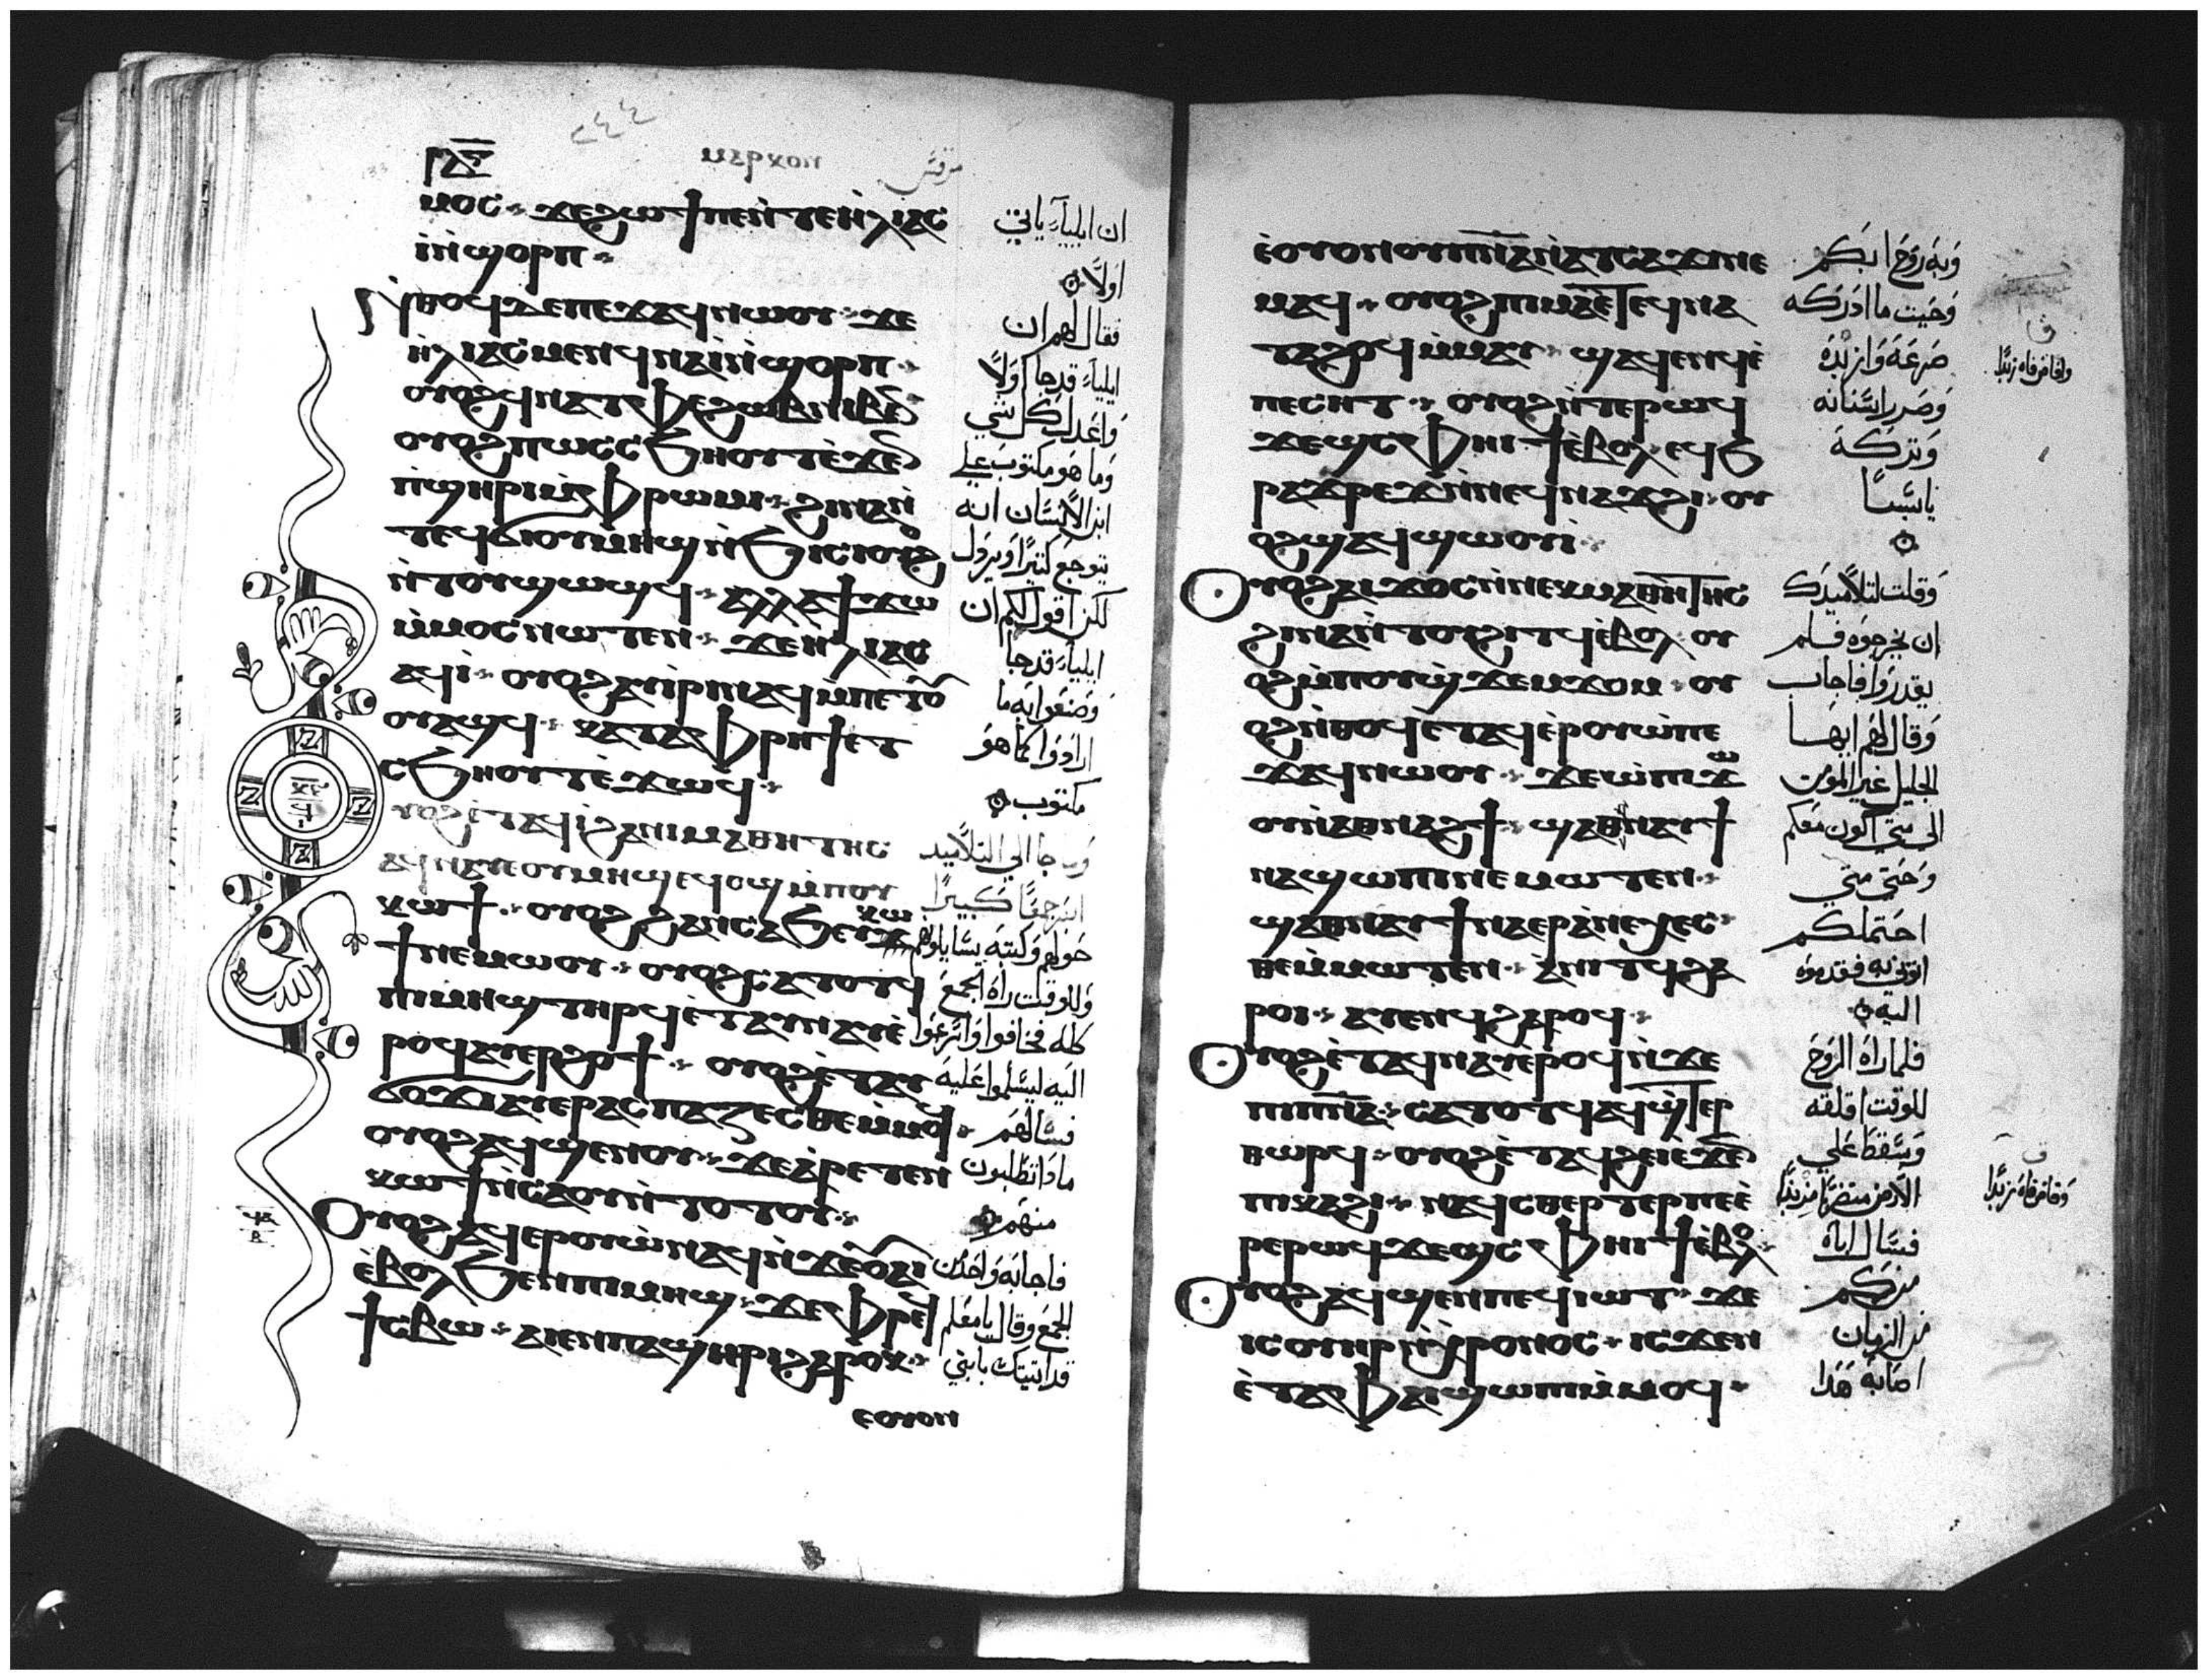 ⲙⲁⲣⲕⲟⲛ
مرقس
٢٤٤
ⲙⲟⲥ ϫⲉϩⲱϯⲡⲉⲛ̀ⲧⲉⲏⲗⲓⲁⲥ
ⲓ̀ⲛ̀ϣⲟⲣⲡ
ⲛ̀ⲑⲟϥⲇⲉⲡⲉϫⲁϥⲛⲱⲟⲩ ϫⲉ
ⲏ̀ⲗⲓⲁⲥⲙⲉⲛϥⲛⲁⲓ̀ⲛ̀ϣⲟⲣⲡ
ⲟⲩⲟϩϥⲛⲁⲧⲁⲫⲉϩⲱⲃⲛⲓⲃⲉⲛ
ⲟⲩⲟϩⲡⲱⲥⲥϧⲏⲟⲩⲧⲉ̀ϫⲉⲛ
ⲡ̀ϣⲏⲣⲓⲙ̀ⲫⲣⲱⲙⲓ ϩⲓⲛⲁⲛ̀
ⲧⲉϥϭⲓⲟⲩⲙⲏϣⲛ̀ϧⲓⲥⲓⲟⲩⲟϩ
ⲛ̀ⲧⲟⲩϣⲟϣϥ ⲁⲗⲗⲁϯϫⲱ
ⲙ̀ⲙⲟⲥⲛⲱⲧⲉⲛ ϫⲉⲏⲗⲓⲁⲥ
ⲁϥⲓ̀ ⲟⲩⲟϩⲁⲩⲓ̀ⲣⲓⲛⲁϥⲙ̀ⲡⲉⲧⲟⲩ
ⲟⲩⲁϣϥ ⲕⲁⲧⲁⲫⲣⲏϯⲉⲧ
ⲥϧⲏⲟⲩⲧⲉ̀ϫⲱϥ
ⲟⲩⲟϩⲉ̀ⲧⲁϥⲓ̀ϩⲁⲛⲓⲙⲁⲑⲏⲧⲏⲥ
ⲁϥⲛⲁⲩⲉⲟⲩⲙⲏϣⲉϥⲟϣⲙ̀ⲡⲟⲩ
ⲕⲱϯ ⲟⲩⲟϩϩⲁⲛⲥⲁϧⲉⲩⲕⲱ
ϯⲛⲉⲙⲱⲟⲩ ⲟⲩⲟϩⲥⲁⲧⲟⲧϥ
ⲡⲓⲙⲏϣⲧⲏⲣϥⲉ̀ⲧⲁⲩⲛⲁⲩⲉ̀
ⲣⲟϥⲁⲩⲉⲣϩⲟϯ ⲟⲩⲟϩⲉ̀ⲧⲁⲩ
ϭⲟϫⲓⲁⲩⲉⲣⲁⲥⲡⲁⲍⲉⲥⲑⲉⲙ̀ⲙⲟϥ
ⲟⲩⲟϩⲁϥϣⲉⲛⲟⲩ ϫⲉⲁ̀ⲣⲉⲧⲉⲛ
ⲕⲱϯⲛ̀ⲥⲁⲟⲩⲛ̀ⲧⲟⲧⲟⲩ
ⲟⲩⲟϩⲁϥⲉⲣⲟⲩⲱ̀ⲛⲁϥⲛ̀ϫⲉⲟⲩⲁⲓ
ⲉ̀ⲃⲟⲗϧⲉⲛⲡⲓⲙⲏϣ ϫⲉⲫⲣⲉϥ
ϯⲥⲃⲱ ⲁⲓⲉⲛⲡⲁϣⲏⲣⲓϩⲁⲣⲟⲕ
ⲉⲟⲩⲟⲛ
ان ايلياء ياتي
اولًا
فقال لهم ان
ايلياء قد جا اولًا
واعد لك كل شي
وما هو مكتوب علي
ابن الانسان انه
يتوجع كثيرًا ويرذل
لكن اقول لكم ان
ايلياء قد جا
وصنعوا به ما
ارادوا كما هو
مكتوب
جا الي التلاميد
ابصر جمعًا كبيرًا
حولهم وكتبه يسايلوهم
وللوقت راه الجمع
كله فخافوا واسرعوا
اليه ليسلموا عليه
فسالهم
ماذا تطلبون
منهم
فاجابه واحد من
الجمع وقال يا معلم
قد اتيتك بابني
ⲉ̀ⲟⲩⲟⲛⲟⲩⲡⲛ̅ⲁ̅ⲛ̀ⲁⲧⲥⲁϫⲓⲛⲉ
ⲙⲁϥ ⲟⲩⲟϩⲡⲓⲙⲁⲉ̀ⲧⲉϥⲛⲁ
ⲧⲁϩⲟϥⲙ̀ⲙⲁⲩ ϣⲁϥⲉⲛϥⲉ̀
ⲡⲉⲥⲏⲧ ⲟⲩⲟϩⲛ̀ⲧⲉⲣⲱϥ
ϫⲉϥⲥⲫⲏⲓϯⲉ̀ⲃⲟⲗ ⲉϥϧ
ⲣⲁϫⲣⲉϫⲛ̀ⲛⲉϥⲛⲁϫϩⲓ ⲟⲩ
ⲟϩϣⲁϥϣⲱⲟⲩⲓ̀
ⲟⲩⲟϩⲁⲓϫⲟⲥⲛ̀ⲛⲉⲕⲙⲁⲑⲏⲧⲏⲥ
ϩⲓⲛⲁⲛ̀ⲧⲟⲩϩⲓⲧϥⲉ̀ⲃⲟⲗ ⲟⲩ
ⲟϩⲙ̀ⲡⲟⲩϣ̀ϫⲉⲙϫⲟⲙ ⲟⲩ
ⲟϩⲛ̀ⲑⲟϥⲉ̀ⲧⲁϥⲉ̀ⲣⲟⲩⲱ̀ⲡⲉ
ϫⲁϥⲛⲱⲟⲩ ϫⲉⲱ̀ⲡⲓϫⲱ
ⲟⲩⲛ̀ⲁⲑⲛⲁϩϯ ϣⲁⲑⲛⲁⲩϯ
ⲛⲁϣⲱⲡⲓⲛⲉⲙⲱⲧⲉⲛ
ϣⲁⲑⲛⲁⲩϯⲛⲁⲉⲣⲁ̀ⲛⲉⲭⲉⲥ
ⲑⲉⲙ̀ⲙⲱⲧⲉⲛ ⲁ̀ⲛⲓⲧϥϩⲁ
ⲣⲟⲓ ⲁⲩⲉⲛϥϩⲁⲣⲟϥ
ⲟⲩⲟϩⲉ̀ⲧⲁϥⲛⲁⲩⲉ̀ⲣⲟϥⲛ̀ϫⲉ
ⲡⲓⲡⲛ̅ⲁ̅ ⲥⲁⲧⲟⲧϥⲁϥϣ̀ⲧⲉⲣ
ⲑⲱⲣϥ ⲟⲩⲟϩⲉ̀ⲧⲁϥϩⲉⲓⲉ̀ϫⲉⲛ
ⲡⲓⲕⲁϩⲓ ⲛⲁϥⲥⲑⲉⲣⲧⲉⲣⲡⲉⲉ̀
ⲣⲉⲣⲱϥϫⲉϥⲥⲫⲏⲓϯⲉ̀ⲃⲟⲗ
ⲟⲩⲟϩⲁϥϣⲉⲛⲡⲉϥⲓⲱⲧ ϫⲉ
ⲓⲥⲟⲩⲏⲣⲛ̀ⲭⲣⲟⲛⲟⲥ ⲓⲥϫⲉⲛ
ⲉ̀ⲧⲁⲫⲁⲓϣⲱⲡⲓⲙ̀ⲙⲟϥ
وبه روح ابكم
وحيث ما ادركه
صرعه وازبده
وصرر اسنانه
وتركه
يابسًا
وقلت لتلاميدك
ان يخرجوه فلم
يقدروا فاجاب
وقال لهم ايها
الجيل غير المومن
الي متي اكون معكم
وحتي متي
احتملكم
ايتوني به فقدموه
اليه
فلما راه الروح
للوقت اقلقه
وسقط علي
الارض
فسال اباه
من كم
من الزمان
اصابه هدا